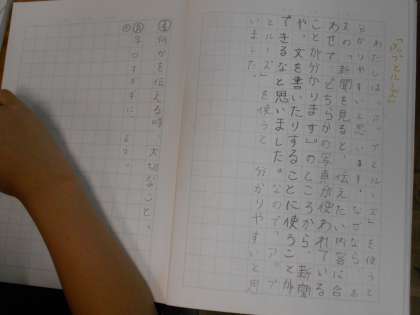 「アップとルーズ」
わたしは、「アップとルーズ」を使うと
分かりやすいと思います。なぜなら、
文の「新聞を見ると、伝えたい内容に合
わせて、どちらかの写真が使われている
ことが分かります」のところから、新聞
や、文を書いたりすることに使うことが
できるなと思いました。なので、「アップ
とルーズ」を使うと、分かりやすいと思
いました。
何かを伝える時、大切なこと、